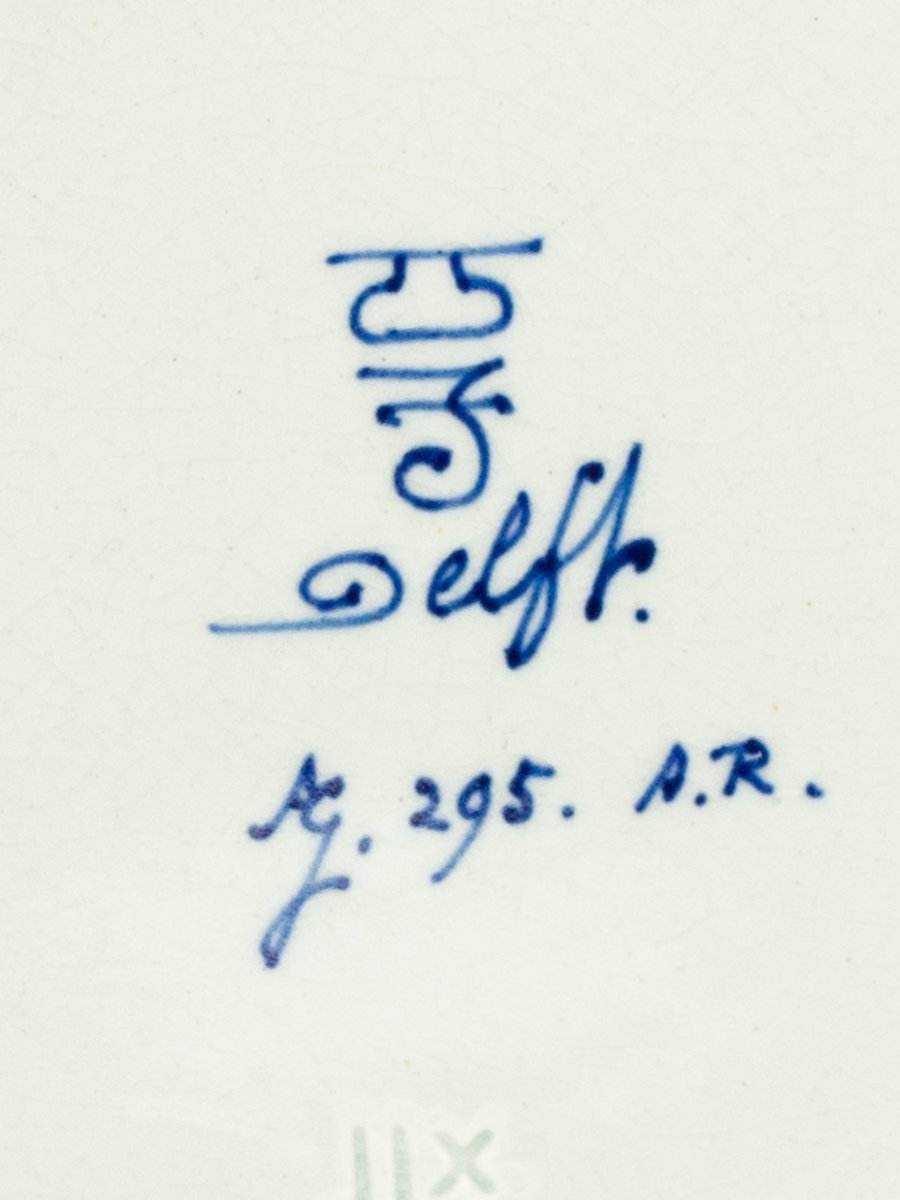 Delft.
AG. 295. A.R.
IIX